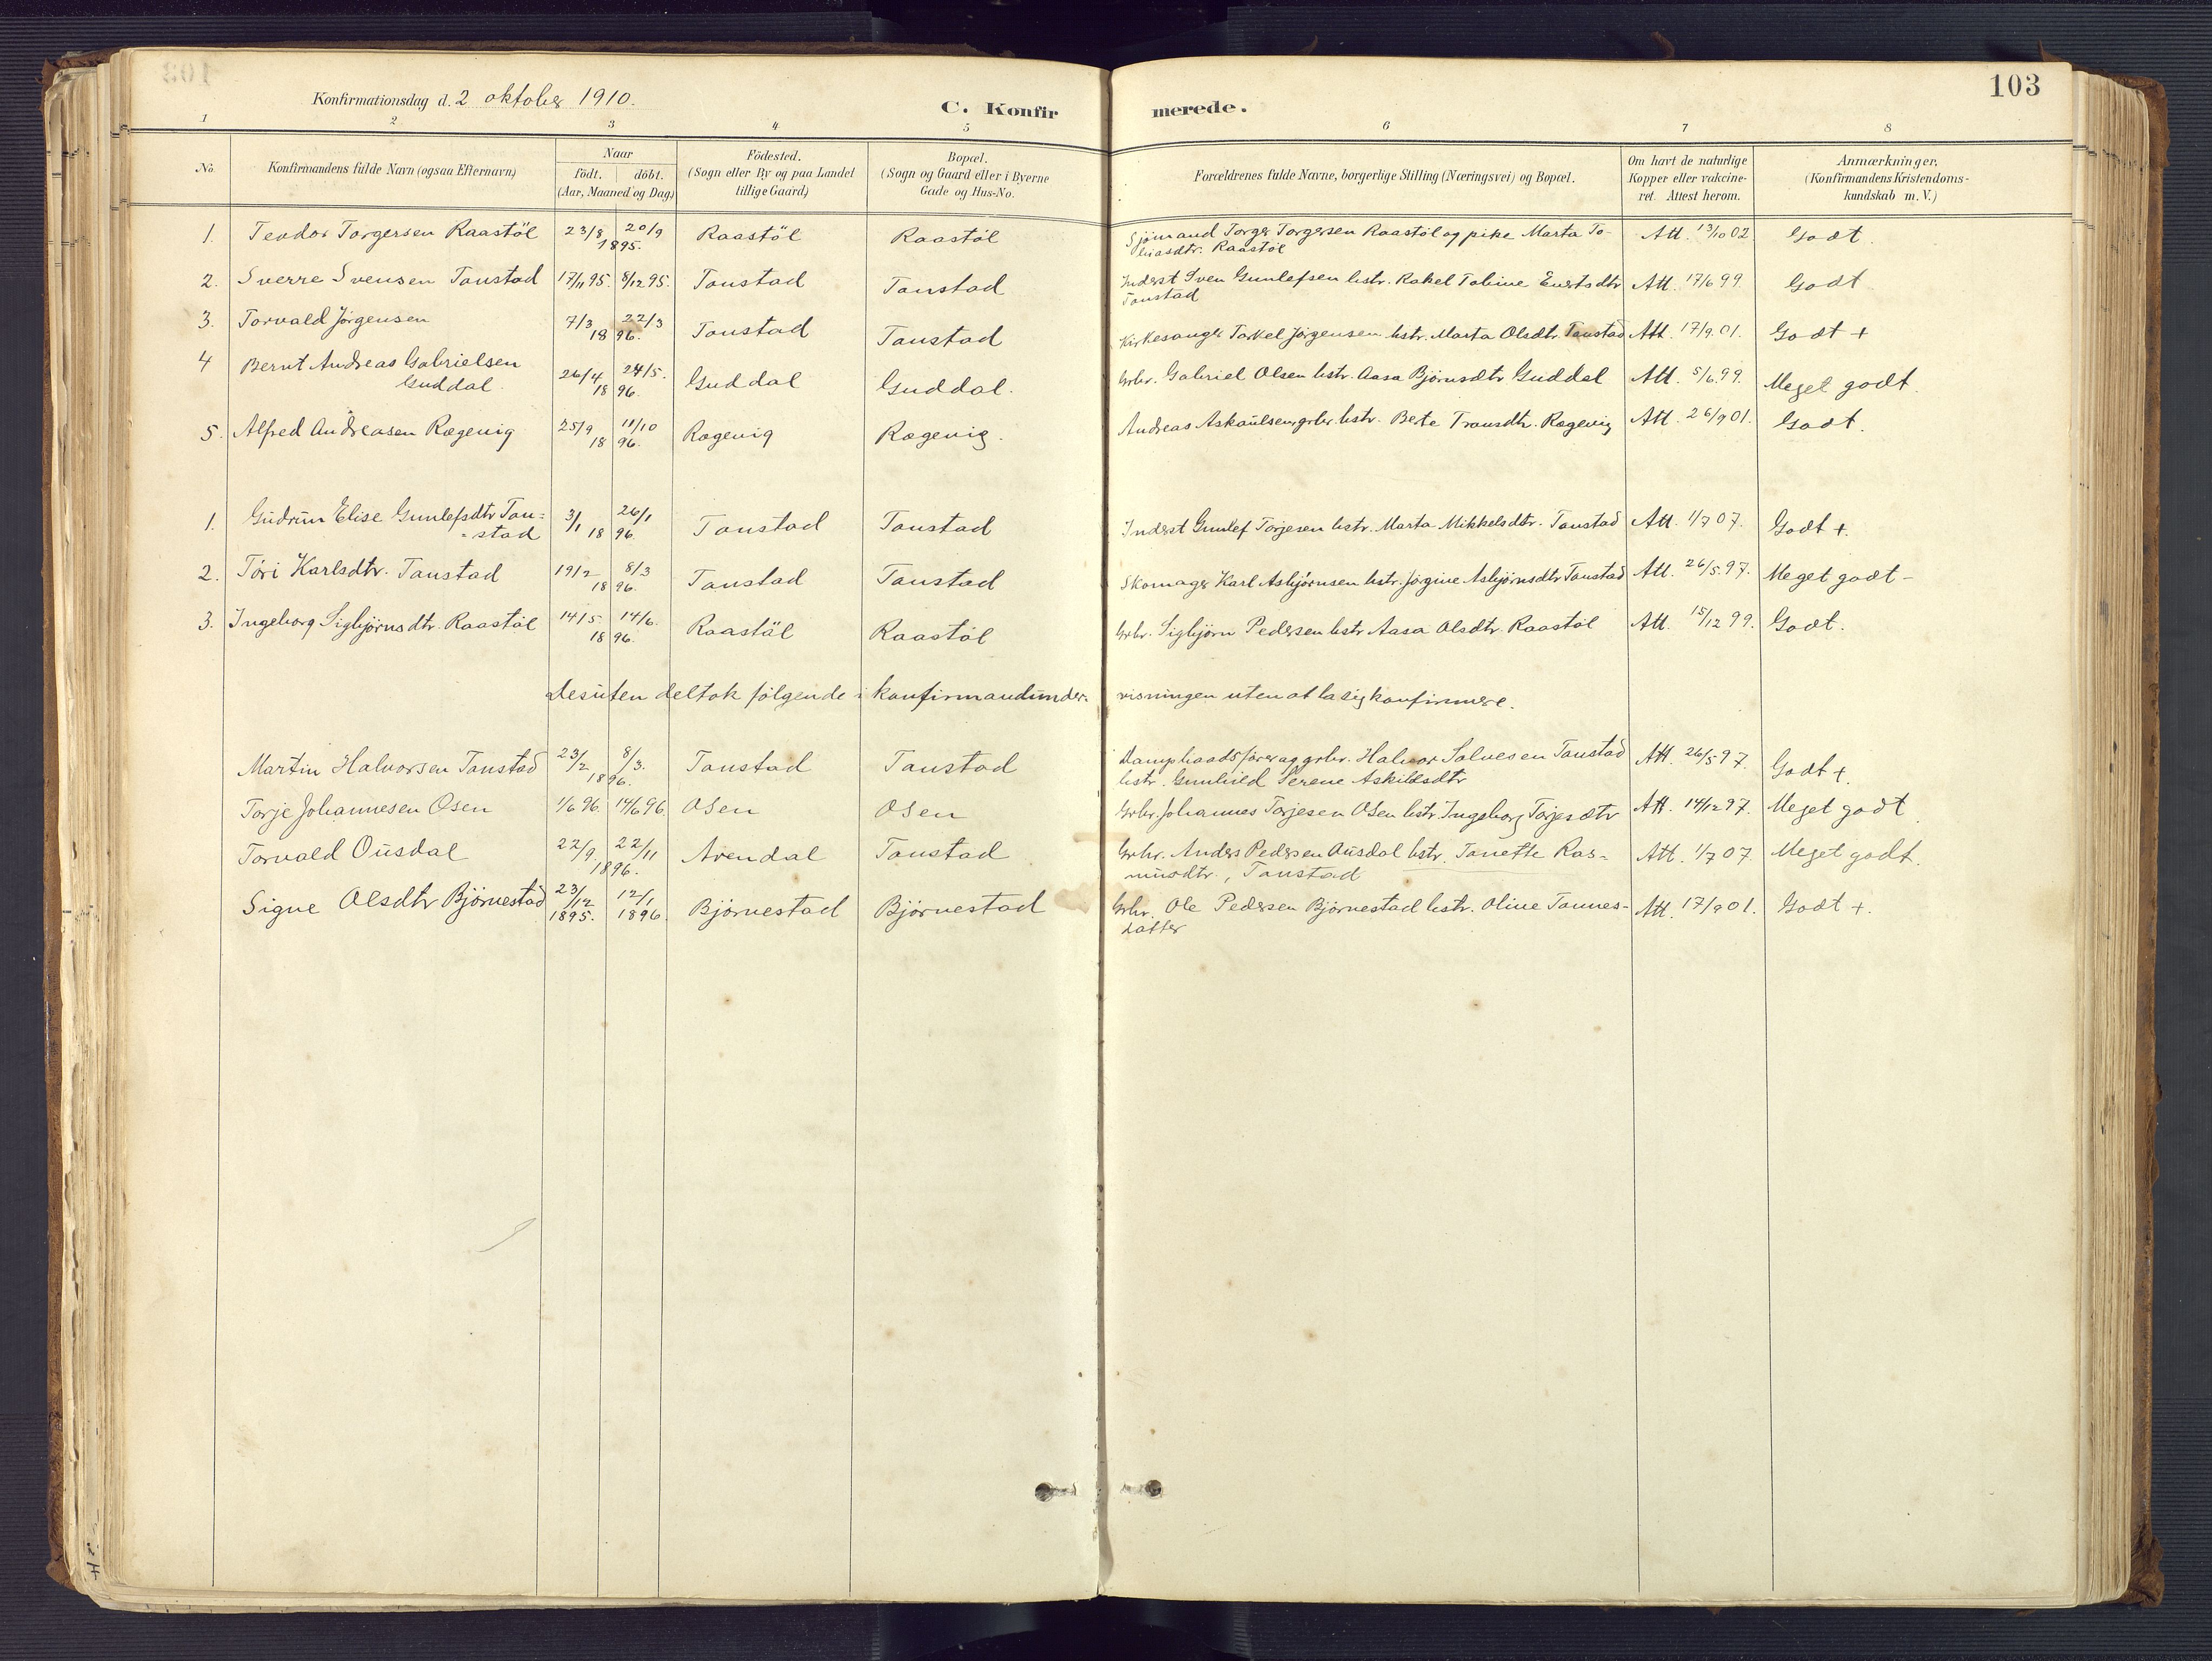 103
Konfirmationsdag d. 2 oktober 1910.
C. Konfirmerede.
1 2 3 4 5 6 7 8
No.
Konfirmandens fulde Navn (ogsaa Efternavn)
Naar
födt. döbt.
(Aar, Maaned og Dag)
Födested.
(Sogn eller By og paa Landet
tillige Gaard)
Bopæl.
(Sogn og Gaard eller i Byerne
Gade og Hus-No.
Forældrenes fulde Navne, borgerlige Stilling (Næringsvei) og Bopæl.
Om havt de naturlige
Kopper eller vakcine-
ret. Attest herom.
Anmærkninger,
(Konfirmandens Kristendoms-
kundskab m. V.)
1. Teodor Torgersen Raastöl 23/8 20/9 Raastöl Raastöl Sjömand Torger Torgersen Raastöl og pike Marta To- Att. 13/10 02 Godt.
1895. biasdtr. Raastöl
2. Sverre Svensen Tanstad 17/11 95. 8/12 95. Tanstad Tanstad Inderst Sven Gunlefsen hstr. Rakel Tobine Evertsdtr Att. 17/6 99. Godt
Tanstad
3. Torvald Jörgensen 7/3 22/3 Tanstad Tanstad Kirkesanger Tarkel Jörgensen hstr. Marta Olsdtr. Tanstad Att. 17/9 01. Godt +
1896.
4 Bernt Andreas Gabrielsen
Guddal 26/4 24/5. Guddal Guddal. Grbr. Gabriel Olsen hstr. Aasa Björnsdtr Guddal Att. 5/6 99. Meget godt.
1896.
5. Alfred Andreasen Rægevig 25/9 11/10 Rægevig Rægevig. Andreas Askaulsen grbr. hstr. Berte Transdtr. Rægevig Att. 26/9 01. Godt.
1896.
1. Gudrun Elise Gunlefsdtr Tan=
=stad 3/1 26/1 Tanstad Tanstad Inderst Gunlef Torjesen hstr. Marta Mikkelsdtr. Tanstad Att. 1/7 07. Godt +.
1896.
2. Töri Karlsdtr. Tanstad 19/2 8/3 Tanstad Tanstad Skomager Karl Asbjörnsen hstr. Jörgine Asbjörnsdtr Tanstad Att. 26/5 97. Meget godt -
1896.
3. Ingeborg Sigbjörnsdtr. Raastöl 14/5 14/6. Raastöl Raastöl Grbr. Sigbjörn Pedersen hstr Aasa Olsdtr. Raastöl Att. 15/12 99. Godt.
1896.
Desuten deltok følgende i konfirmandunder- visningen uten at la sig konfirmere.
Martin Halvorsen Tanstad 23/2 8/3. Tanstad Tanstad Dampbaadsförer og grbr. Halvor Salvesen Tanstad Att. 26/5 97. Godt +.
1896. hstr. Gunhild Serene Askildsdtr
Torje Johannesen Osen 1/6 96. 14/6 96. Osen Osen Grbr. Johannes Torjesen Osen hstr. Ingeborg Torjesdtr Att. 14/12 97. Meget godt.
Torvald Ousdal 22/9 22/11 Arendal Tanstad Grbr. Anders Pedersen Ausdal hstr. Tanette Ras- Att. 1/7 07. Meget godt.
1896. musdtr., Tanstad
Signe Olsdtr Björnestad 23/12 12/1 Björnestad Björnestad Grbr. Ole Pedersen Björnestad hstr. Oline Tannes- Att. 17/9 01. Godt +.
1895. 1896. datter